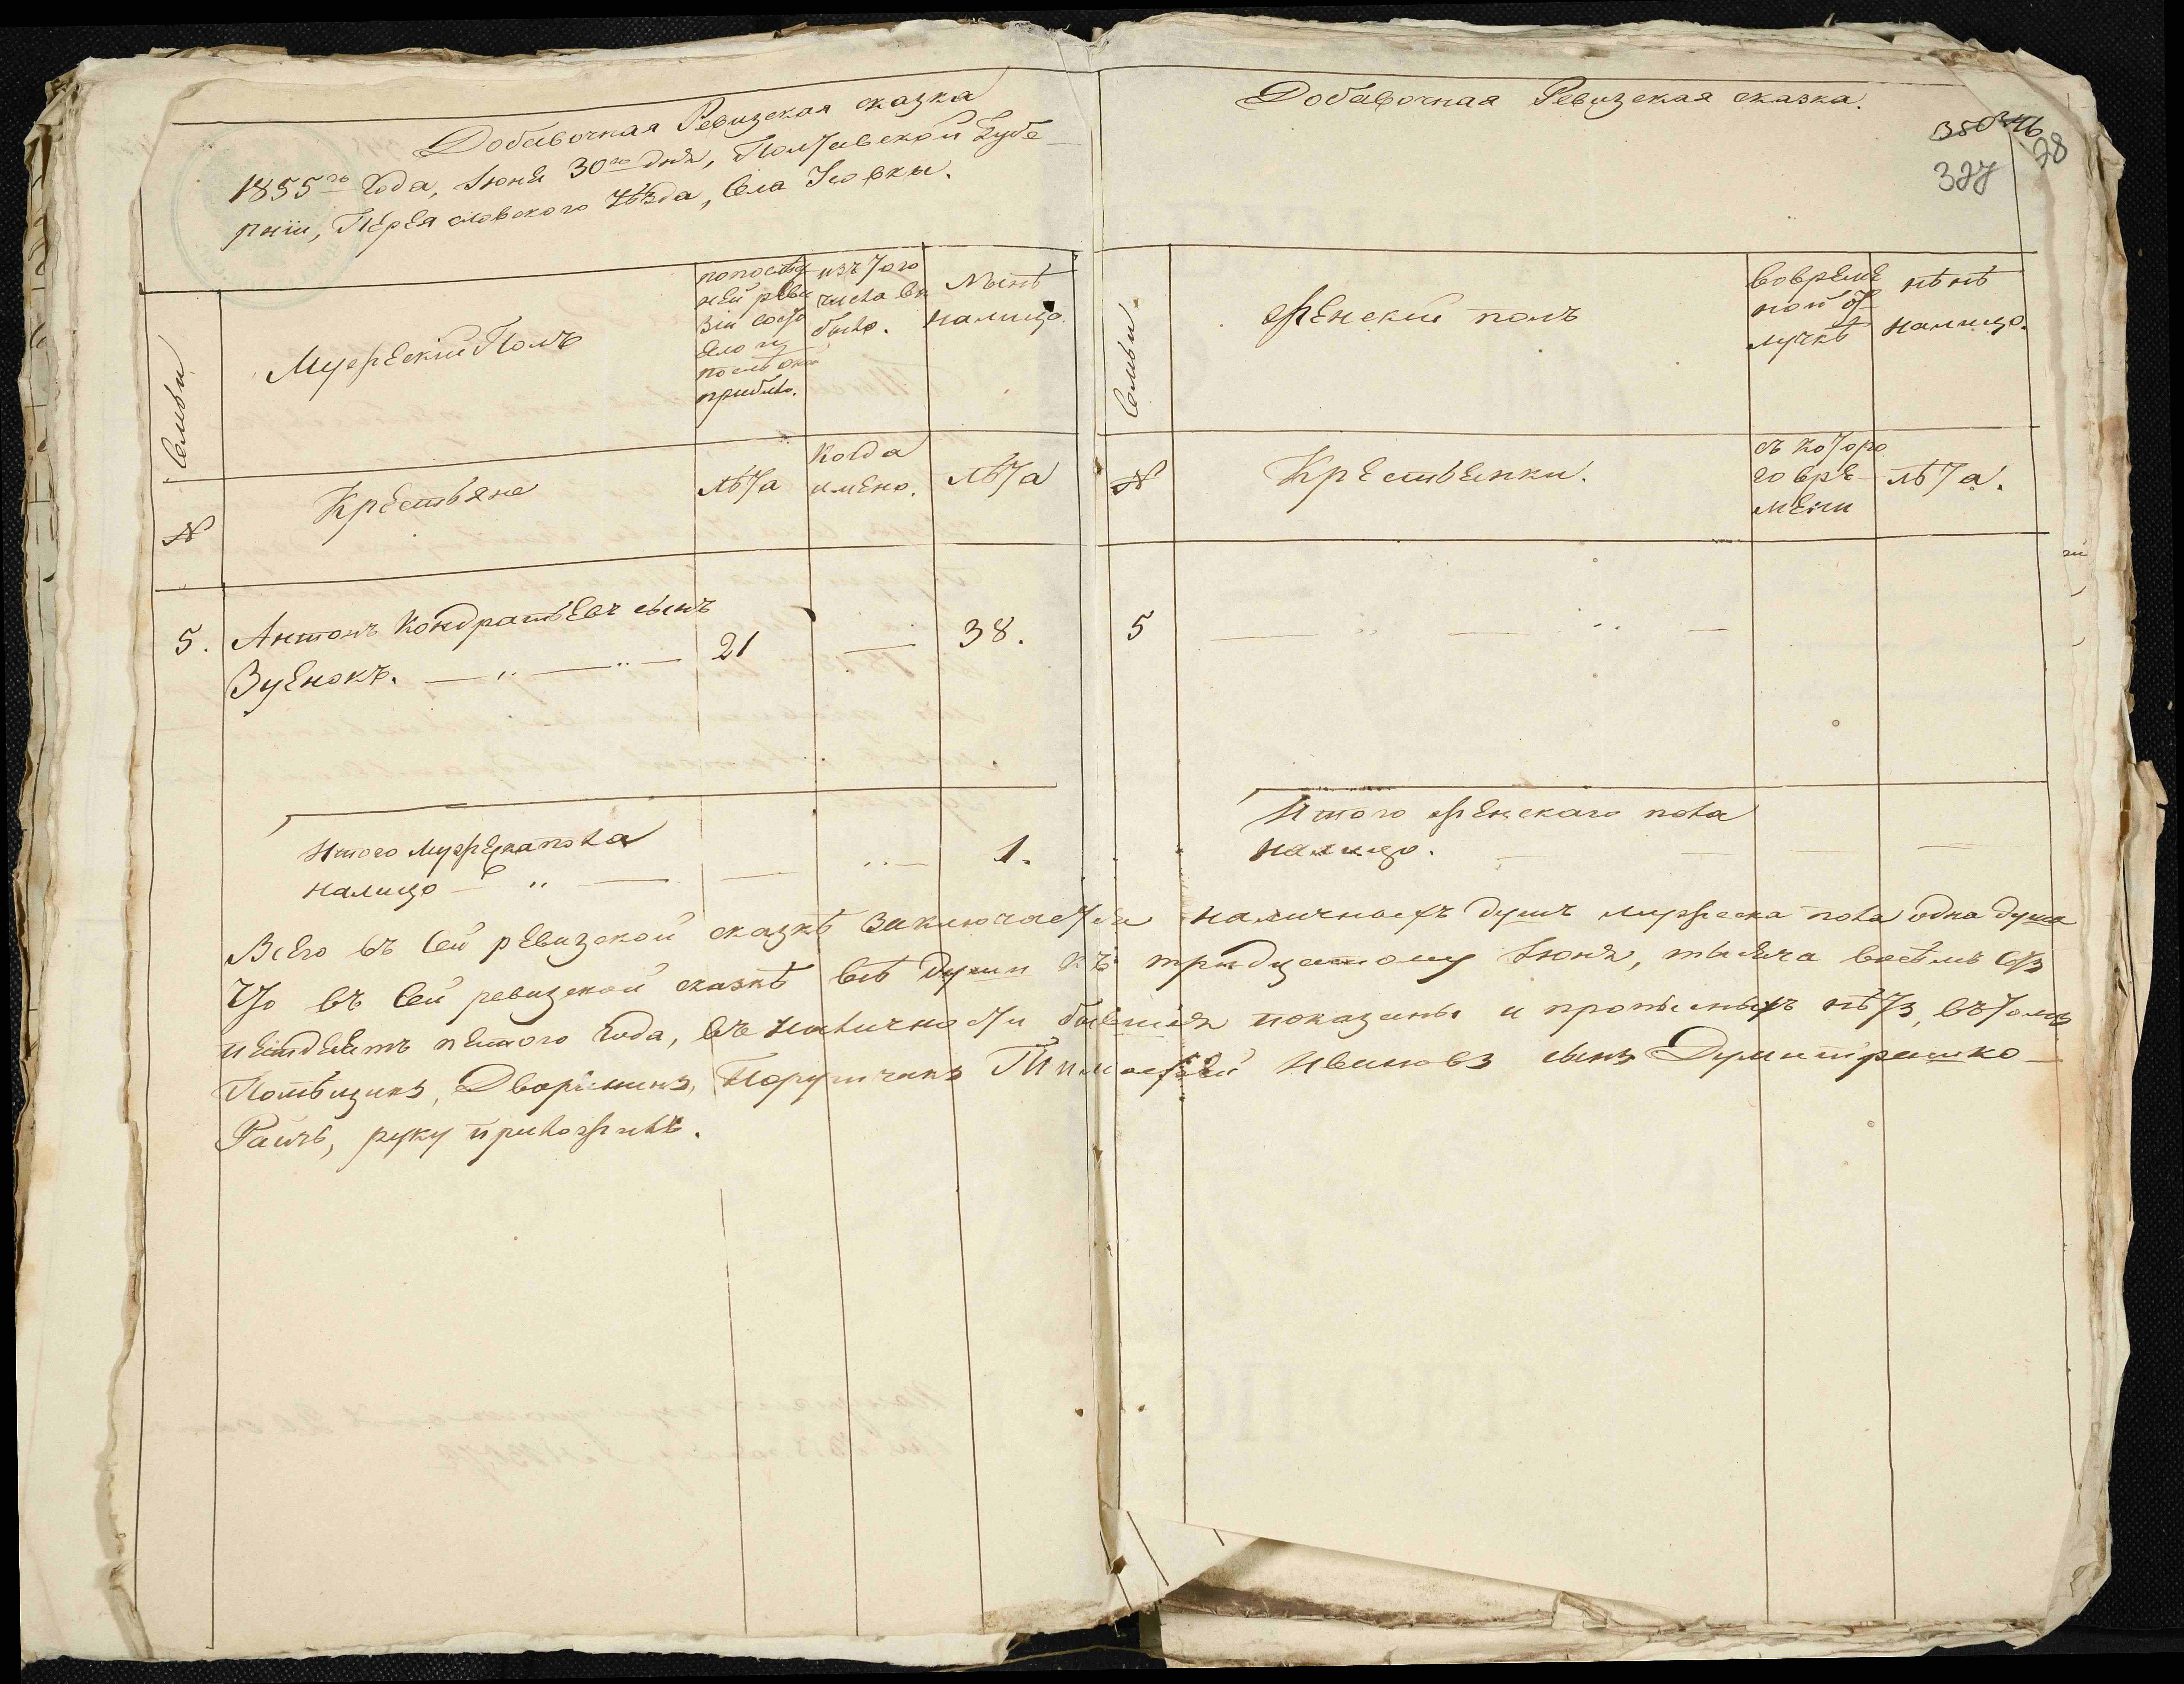 Добавочная Ревизская сказка
1855го Года, Июня 30го дня, Полтавской Губе
рніи, Переясловского Уѣзда, Села Усовки.
Семьи
Мужескій Полъ
по послѣд
ней реви
зіи состо
яло и
послѣ оной
прибыло.
изъ того
числа вы
было.
Нынѣ
налицо.
№
Крестьяне
лѣта
Когда
имено.
лѣта
5. Антонъ Кондратьевъ сынъ
Зуенокъ. — „ — „ — 21 — 38.
Итого Мужеска пола
налицо — „ — — „ — 1.
Добавочная Ревизская сказка.
350 346
377 28
Семьи.
Женскій полъ
Во време
ной от
лучкѣ
нынѣ
налицо.
№
Крестьянки.
съ которо
го вре-
мени
лѣта.
5 — „ — „ —
Итого женскаго пола
налицо. — — —
Всего въ сей ревизской сказкѣ заключается наличныхъ душъ мужеска пола одна душа
Что въ сей ревизской сказкѣ всѣ души къ тридцатому Июня, тысяча восѣмь сотъ
пятдесятъ пятого Года, въ наличности бывшія показаны и прописныхъ нѣтъ, въ томъ
Помѣщикъ, Дворянинъ, Поручикъ Тимофей Ивановъ сынъ Думитрашко-
Раичъ, руку приложилъ.